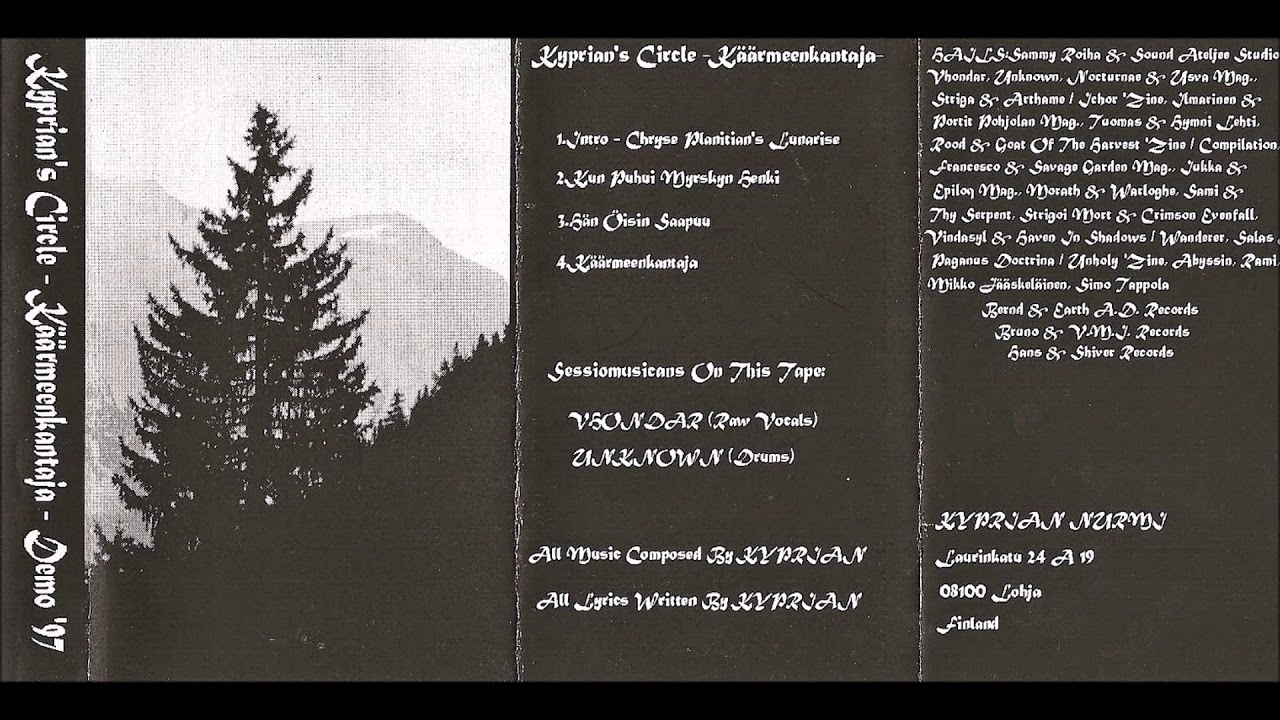 Kyprian's Circle - Käärmeenkantaja - Demo '97
Kyprian's Circle -Käärmeenkantaja-
1.Intro - Chryse Planitian's Lunarise
2.Kun Puhui Myrskyn Henki
3.Hän Öisin Saapuu
4.Käärmeenkantaja
Sessiomusicans On This Tape:
VHONDAR (Raw Vocals)
UNKNOWN (Drums)
All Music Composed By KYPRIAN
All Lyrics Written By KYPRIAN
HAILS:Sammy Roiha & Sound Ateljee Studio
Vhondar, Unknown, Nocturnae & Usva Mag.,
Striga & Arthame / Ichor 'Zine, Ilmarinen &
Portit Pohjolan Mag., Tuomas & Hymni Lehti,
Rood & Goat Of The Harvest 'Zine / Compilation,
Francesco & Savage Garden Mag., Jukka &
Epiloq Mag., Morath & Warloghe, Sami &
Thy Serpent, Strigoi Mort & Crimson Evenfall,
Vindasyl & Haven In Shadows / Wanderer, Salas
Paganus Doctrina / Unholy 'Zine, Abyssin, Rami,
Mikko Jääskeläinen, Simo Tappola
Bernd & Earth A.D. Records
Bruno & V.M.I. Records
Hans & Shiver Records
KYPRIAN NURMI
Laurinkatu 24 A 19
08100 Lohja
Finland